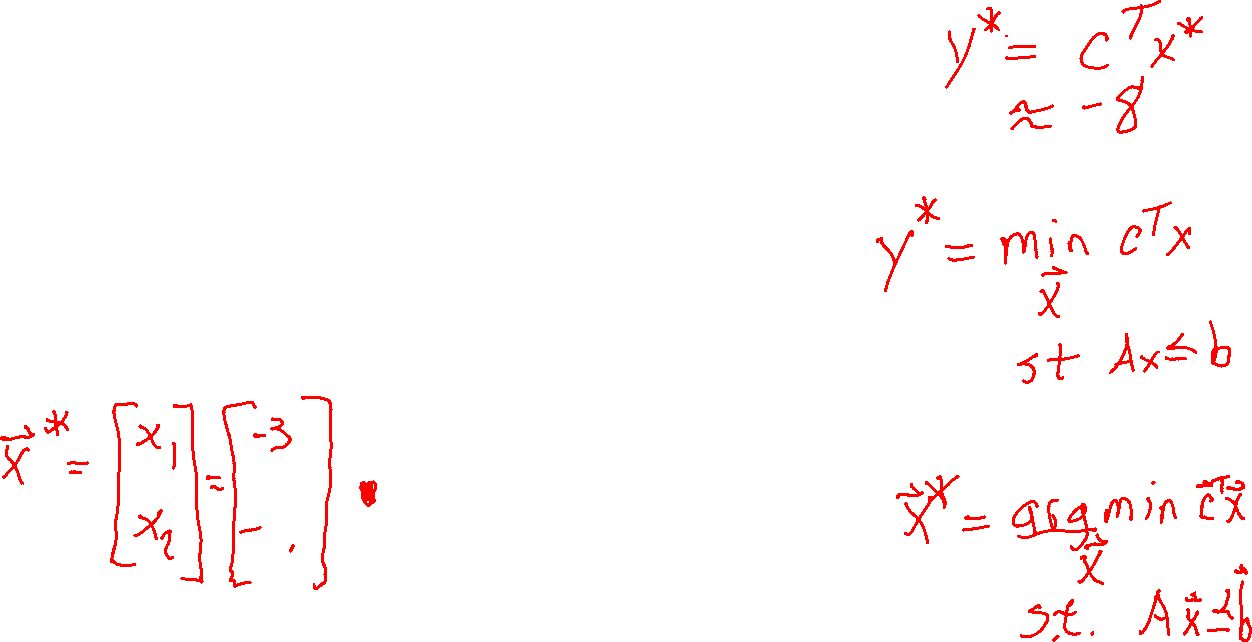 y* = cᵀx*
≈ -8
y* = min cᵀx
x⃗
st Ax ≤ b
x⃗* = [x₁ x₂] = [-3 - .]
x⃗* = argmin c⃗ᵀx⃗
x⃗
s.t. Ax⃗ ≤ b⃗